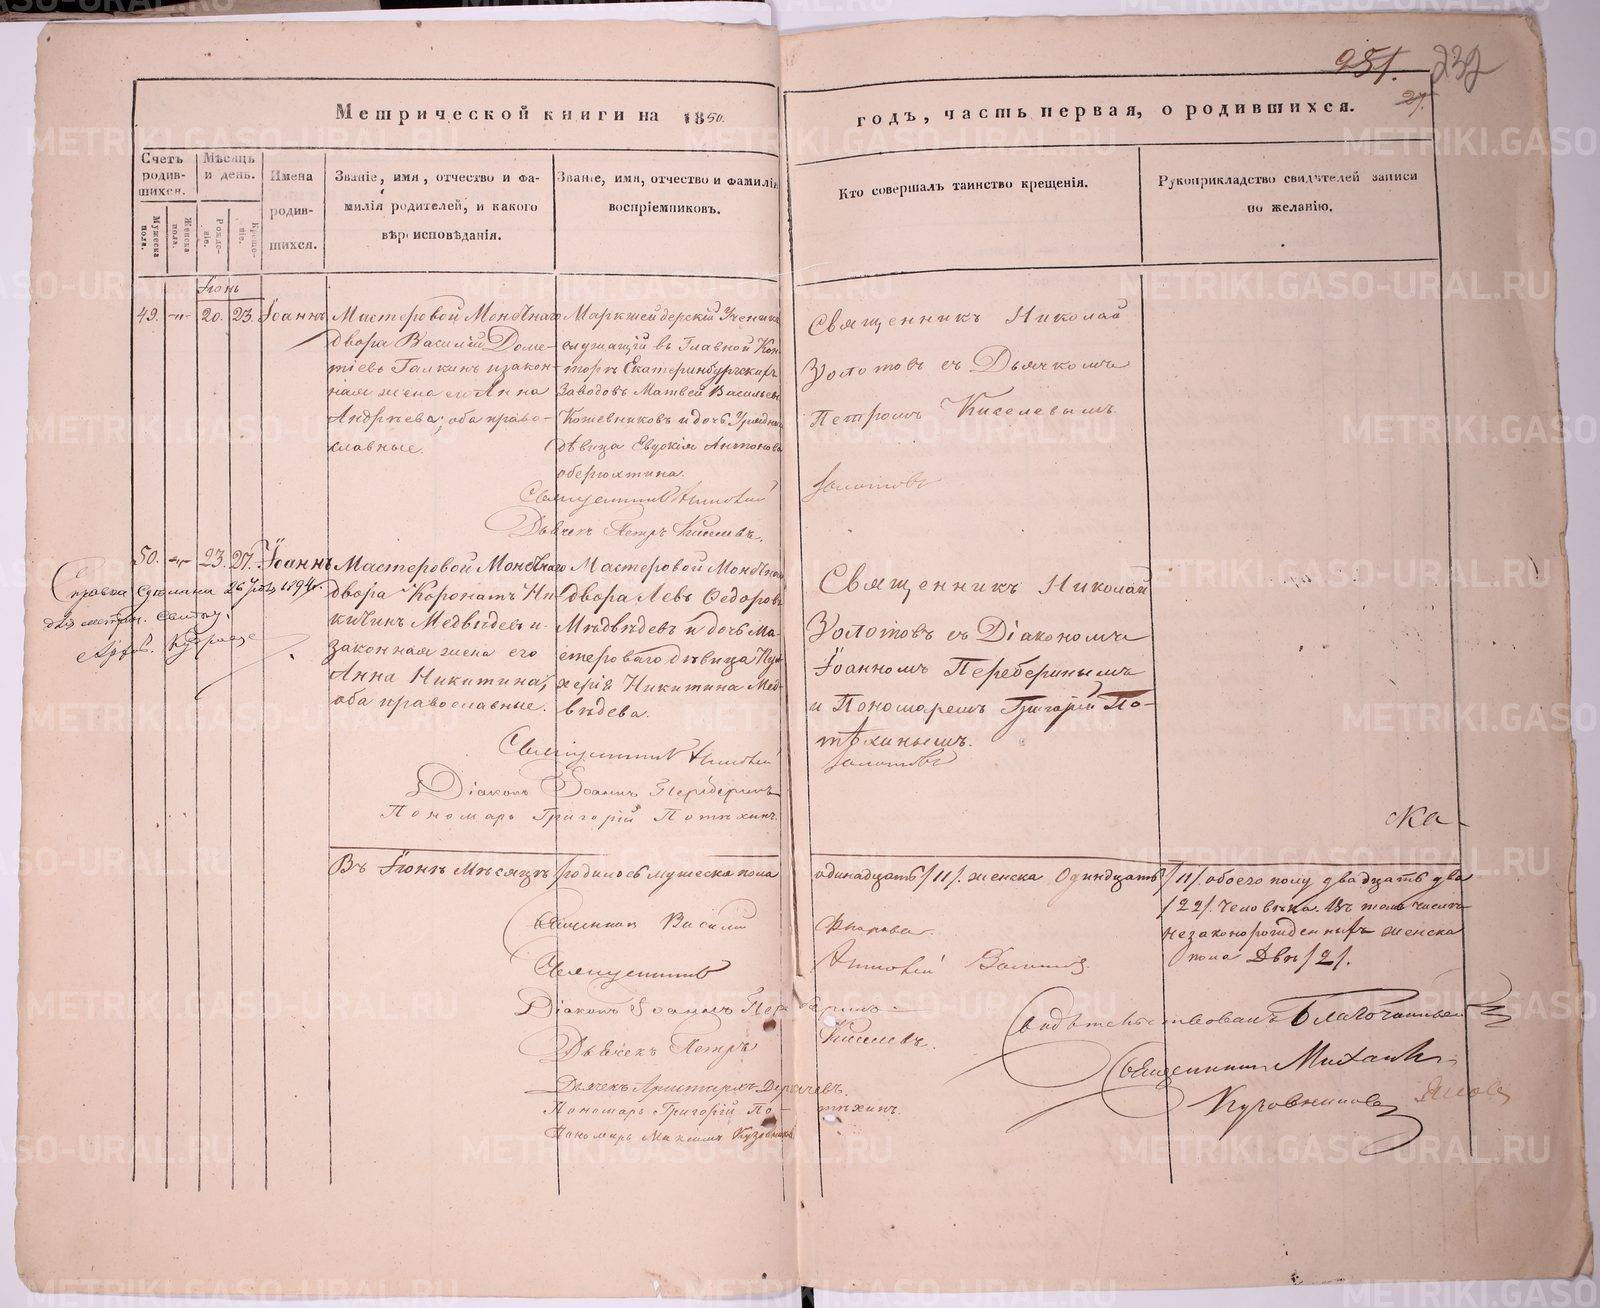 251. 232
27.
Метрической книги на 1850.
годъ, часть первая, о родившихся.
Счетъ родив-шихся.
Мужеска пола.
Женска пола.
Мѣсяцъ и день.
Рожде-нія.
Креще-нія.
Имена родив-шихся.
Званіе, имя, отчество и фа-
милія родителей, и какого
вѣроисповѣданія.
Званіе, имя, отчество и фамилія
воспріемниковъ.
Кто совершалъ таинство крещенія.
Рукоприкладство свидѣтелей записи
по желанію.
Іюнь
49. -"- 20. 23. Іоаннъ
Мастеровой Монѣтнаго
двора Василій Доме-
тіевъ Галкинъ и закон-
ная жена его Анна
Андрѣева; оба право-
славные.
Маркшейдерскій Ученикъ
служащій въ Главной Кон-
торѣ Екатеринбургскихъ
Заводовъ Матвей Васильевъ
Кожевниковъ и дочь Урядника
дѣвица Евдокія Антонова
Оберюхтина.
Священникъ Николай
Золотовъ съ Дьячкомъ
Петромъ Киселевымъ.
Золотовъ
Священникъ Николай
Дьячекъ Петръ Киселевъ.
50. -"- 23. 27. Іоаннъ
Мастеровой Монѣтнаго
двора Коронатъ Ни-
китинъ Медвѣдевъ и
законная жена его
Анна Никитина,
оба православные.
Мастеровой Монѣтнаго
двора Левъ Ѳедоровъ
Мѣдвѣдевъ и дочь Ма-
стероваго дѣвица
Никитина Мед-
вѣдева.
Священникъ Николай
Золотовъ съ Діакономъ
Іоанномъ Переберинымъ
и Пономаремъ Григорій По-
тѣхинымъ.
Золотовъ
Справка сдѣлана 26 1894 г.
Священникъ Николай
Діаконъ Іоаннъ Переберинъ
Пономарь Григорій Потѣхинъ.
ска
Въ Іюнѣ Мѣсяцѣ родилось мужеска пола одинадцать /11/. женска Одиндцать /11/. обоего полу двадцать два
/22/. человѣка. Въ томъ числѣ
незаконорожденныхъ женска
пола Двѣ /2/.
Священникъ Василій
Священникъ Николай Золотовъ.
Діаконъ Іоаннъ Переберинъ
Дьячекъ Петръ Киселевъ.
Дьячекъ Аристархъ Дерягевъ.
Пономарь Григорій Потѣхинъ.
Пономарь Максимъ
Свидѣтельствовалъ Благочинный
Священникъ Михаилъ
METRIKI.GASO-URAL.RU